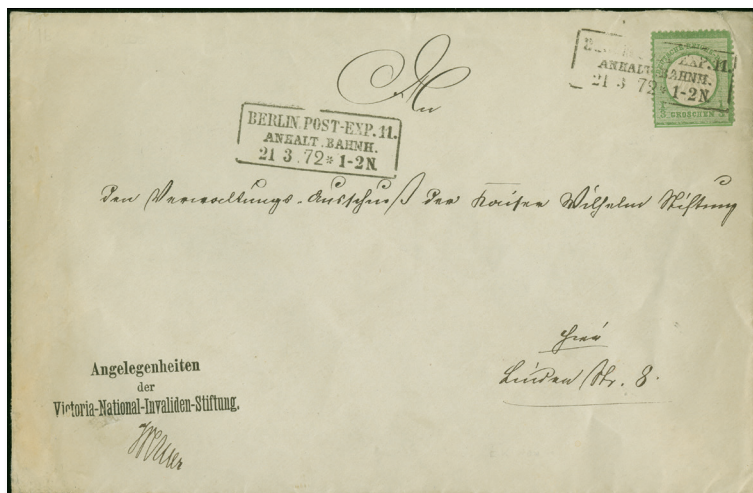 An
BERLIN POST-EXP. 11.
ANHALT. BAHNH.
21 3. 72 * 1-2N.
EXP. 11.
ANHALT. BAHNH.
21 3 72 * 1-2N.
1/3 GROSCHEN 1/3
den Verwaltungs-Ausschuß der Kaiser Wilhelm Stiftung
hier
Linden Str. 8.
Angelegenheiten
der
Victoria-National-Invaliden-Stiftung.